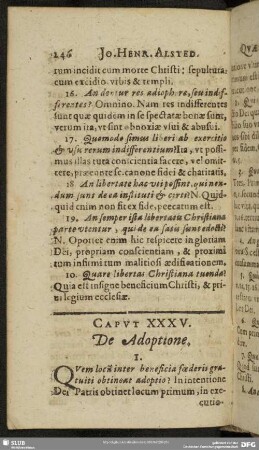 246 JO. HENR. ALSTED.
rum incidit cum morte Christi; sepultura
cum excidio vrbis & templi.
16. An dentur res adiaphoræ, seu indif-
ferentes? Omnino. Nam res indifferentes
sunt quæ quidem in se spectatæ bonæ sunt,
verum ita, vt sint obnoxiæ vsui & abusui.
17. Quomodo simus liberi ab exercitio
& vsu rerum indifferentium? Ita, vt possi-
mus illas tuta conscientia facere, vel omit-
tere, præeunte sc. canone fidei & charitatis.
18. An libertate hac vti possint, qui nen-
dum sunt de ea instituti & certi? N. Quic-
quid enim non fit ex fide, peccatum est.
19. An semper ista libertate Christiana
parte vtentur, qui de ea satis sunt edocti?
N. Oportet enim hic respicere in gloriam
Dei, propriam conscientiam, & proximi
tum infirmi tum malitiosi ædificationem,
10. Quare libertas Christiana tuenda?
Quia est insigne beneficium Christi, & pri-
uilegium ecclesiæ.
CAPVT XXXV.
De Adoptione,
1.
QVem locũ inter beneficia fœderis gra-
tuiti obtinet adoptio? In intentione
Dei Patris obtinet locum primum, in exe-
cutio-